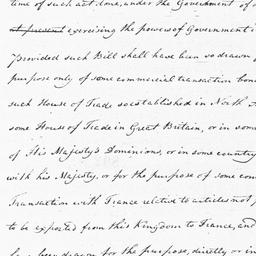 time of such act done, under the Government of
at present exercising the powers of Government i
provided such Bill shall have been so drawn o
purpose only of some commercial transaction bon
such House of Trade so established in North
some House of Trade in Great Britain, or in som
of His Majesty's Dominions, or in some country
with his Majesty, or for the purpose of some com
Transaction with France relative to articles not
to be exported from this Kingdom to France, and
been drawn for the purpose, directly or in